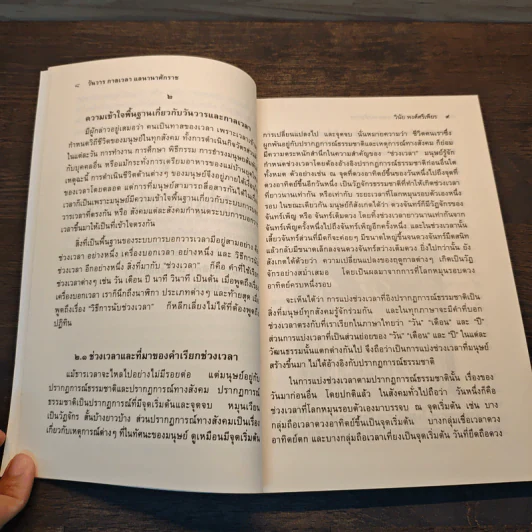 ๘ วันวาร กาลเวลา แลนานาศักราช
๒
ความเข้าใจพื้นฐานเกี่ยวกับวันวารและกาลเวลา
มีผู้กล่าวอยู่เสมอว่า คนเป็นทาสของเวลา เพราะเวลา
กำหนดวิถีชีวิตของมนุษย์ในทุกสังคม ทั้งการดำเนินชีวิต
ในแต่ละวัน การทำงาน การศึกษา พิธีกรรม การดำรง
กับบุคคลอื่น หรือแม้กระทั่งการเตรียมอาหารของแม่บ้าน
เหตุฉะนี้ การดำเนินชีวิตด้านต่างๆ ของมนุษย์จึงอยู่ภายใต้เงื่อนไข
ของเวลาโดยตลอด แต่การที่มนุษย์สามารถสื่อสารกันได้ในเรื่อง
เวลาก็เป็นเพราะมนุษย์มีความเข้าใจพื้นฐานเกี่ยวกับระบบการบอก
วารเวลาตรงกัน หรือ สังคมแต่ละสังคมกำหนดระบบการบอกวาร
เวลาขึ้นมาให้เป็นที่เข้าใจตรงกัน
สิ่งที่เป็นพื้นฐานของระบบการบอกวารเวลามีอยู่สามอย่าง คือ
ช่วงเวลา อย่างหนึ่ง เครื่องบอกเวลา อย่างหนึ่ง และ วิธีการนับ
ช่วงเวลา อีกอย่างหนึ่ง สิ่งที่มาวัด "ช่วงเวลา" ก็คือ คำที่ใช้เรียก
ช่วงเวลาต่างๆ เช่น วัน เดือน ปี นาที วินาที เป็นต้น เมื่อพูดถึง
เครื่องบอกเวลา เราก็นึกถึงนาฬิกา ประเภทต่างๆ และท้ายสุด เมื่อ
พูดถึงเรื่อง "วิธีการนับช่วงเวลา" ก็หลีกเลี่ยงไม่ได้ที่ต้องพูดถึง
ปฏิทิน
๒.๑ ช่วงเวลาและที่มาของคำเรียกช่วงเวลา
แม้ว่าเวลาจะไหลไปอย่างไม่มีรอยต่อ แต่มนุษย์อยู่กับ
ปรากฏการณ์ธรรมชาติและปรากฏการณ์ทางสังคม ปรากฏการณ์
ธรรมชาติเป็นปรากฏการณ์ที่มีจุดเริ่มและจุดจบ หมุนเวียน
เป็นวัฏจักร สั้นบ้างยาวบ้าง ส่วนปรากฏการณ์ทางสังคมเป็นเรื่อง
เกี่ยวกับเหตุการณ์ต่างๆ ที่ในทัศนะของมนุษย์ ดูเหมือนมีจุดเริ่มต้น
วินัย พงศ์ศรีเพียร ๙
การเปลี่ยนแปลงไป และจุดจบ นั่นหมายความว่า ชีวิตคนเราซึ่ง
ผูกพันอยู่กับปรากฏการณ์ธรรมชาติและเหตุการณ์ทางสังคม ก็ย่อม
มีความตระหนักสำนึกในความสำคัญของ "ช่วงเวลา" มนุษย์รู้จัก
กำหนดช่วงเวลาโดยต้องอ้างอิงปรากฏการณ์ธรรมชาติก่อนอื่นใด
ทั้งหมด ตัวอย่างเช่น ณ จุดที่ดวงอาทิตย์ขึ้นของวันหนึ่งไปถึงจุดที่
ดวงอาทิตย์ขึ้นอีกวันหนึ่ง เป็นวัฏจักรธรรมชาติที่ทำให้เกิดช่วงเวลา
ที่ยาวนานเท่ากัน หรือเท่ากับ ระยะเวลาที่โลกหมุนรอบตัวเองหนึ่ง
รอบ ในขณะเดียวกัน มนุษย์ก็สังเกตได้ว่า ดวงจันทร์ก็มีวัฏจักรของ
จันทร์เพ็ญ หรือ จันทร์เต็มดวง โดยที่ช่วงเวลายาวนานเท่ากันจาก
จันทร์เพ็ญครั้งหนึ่งไปถึงจันทร์เพ็ญอีกครั้งหนึ่ง และในช่วงเวลานั้น
เสี้ยวจันทร์ส่วนที่มืดก็จะค่อยๆ มีขนาดใหญ่ขึ้นจนดวงจันทร์มืดสนิท
แล้วกลับมีขนาดเล็กลงจนดวงจันทร์สว่างเต็มดวง ยิ่งไปกว่านั้น ยัง
สังเกตได้ด้วยว่า ความเปลี่ยนแปลงของฤดูกาลต่างๆ เกิดเป็นวัฏ
จักรอย่างสม่ำเสมอ โดยเป็นผลมาจากการที่โลกหมุนรอบดวง
อาทิตย์ครบหนึ่งรอบ
จะเห็นได้ว่า การแบ่งช่วงเวลาที่อิงปรากฏการณ์ธรรมชาติเป็น
สิ่งที่มนุษย์ทุกสังคมรู้จักร่วมกัน และในทุกภาษาจะมีคำที่บอก
ช่วงเวลาตรงกับที่เราเรียกในภาษาไทยว่า "วัน" "เดือน" และ "ปี"
ส่วนการแบ่งเวลาที่เป็นส่วนย่อยของ "วัน" "เดือน" และ "ปี" ในแต่ละ
วัฒนธรรมนั้นแตกต่างกันไป จึงถือว่าเป็นการแบ่งช่วงเวลาที่มนุษย์
สร้างขึ้นมา ไม่ได้อ้างอิงกับปรากฏการณ์ธรรมชาติ
ในการแบ่งช่วงเวลาตามปรากฏการณ์ธรรมชาตินั้น เรื่องของ
วันมาก่อนอื่น โดยปกติแล้ว ในสังคมทั่วไปถือว่า วันหนึ่งก็คือ
ช่วงเวลาที่โลกหมุนรอบตัวเองมาบรรจบ ณ จุดเริ่มต้น เช่น บาง
กลุ่มถือเวลาดวงอาทิตย์ขึ้นเป็นจุดเริ่มต้น บางกลุ่มเชื่อเวลาดวง
อาทิตย์ตก และบางกลุ่มถือเวลาเที่ยงเป็นจุดเริ่มต้น วันที่ยึดถือดวง